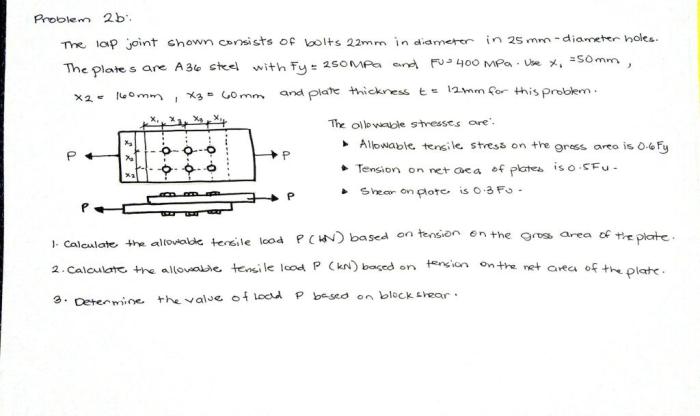 Problem 2b:
The lap joint shown consists of bolts 22mm in diameter in 25mm-diameter holes.
The plates are A36 steel with Fy = 250MPa and FU=400 MPa. Use X1 =50mm,
X2 = 160mm, X3 = 60mm and plate thickness t = 12mm for this problem.
X1 X3 X3 X1
The allowable stresses are:
Allowable tensile stress on the gross area is 0.6Fy
Tension on net area of plates is 0.5Fu.
Shear on plate is 0.3Fu.
X2
X2
P
P
P
P
1. Calculate the allowable tensile load P (kN) based on tension on the gross area of the plate.
2. Calculate the allowable tensile load P (kN) based on tension on the net area of the plate.
3. Determine the value of load P based on block shear.